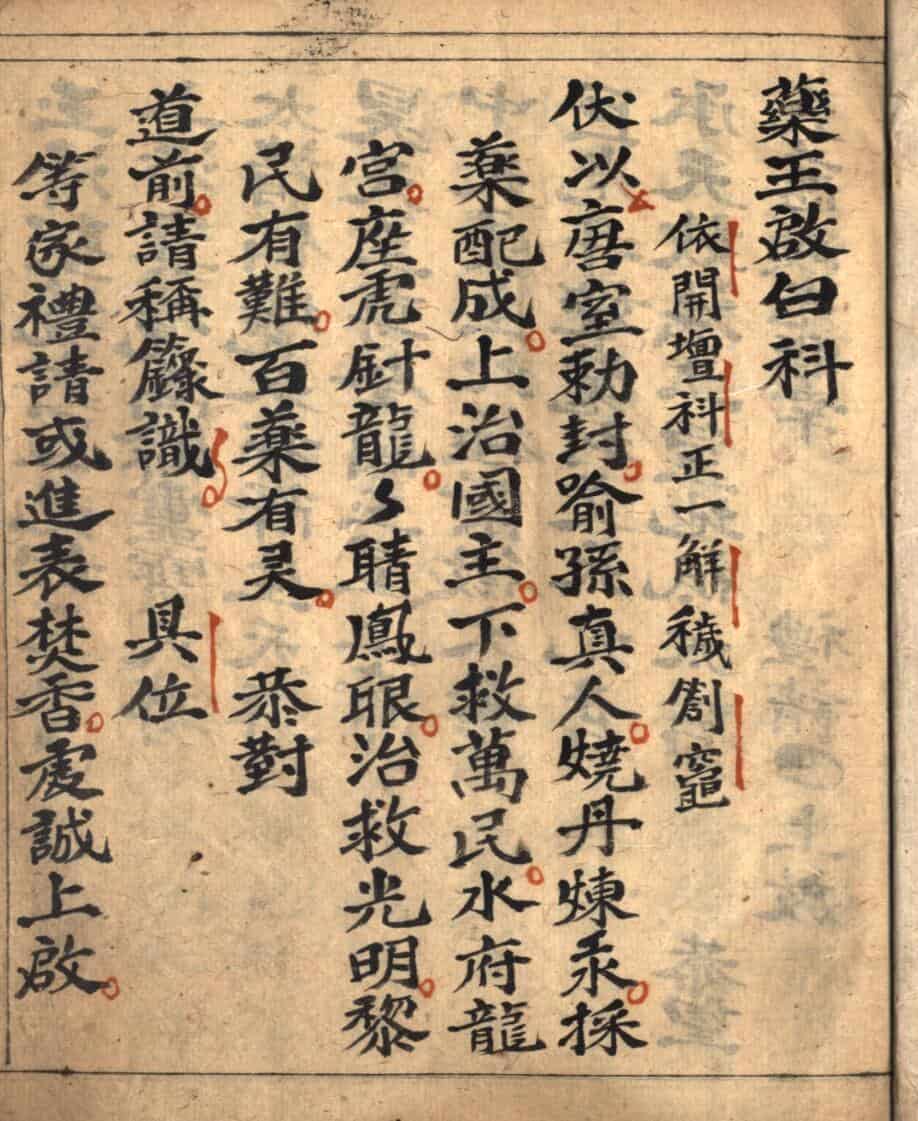 藥王啟白科
依開壇科正一解穢劄竈
伏以唐室勅封喻孫真人燒丹煉汞採
藥配成上治國主下救萬民水府龍
宮座虎針龍々睛鳳眼治救光明黎
民有難百藥有灵 恭對
道前請稱籙識 具位
等家禮請或進表焚香虔誠上啟